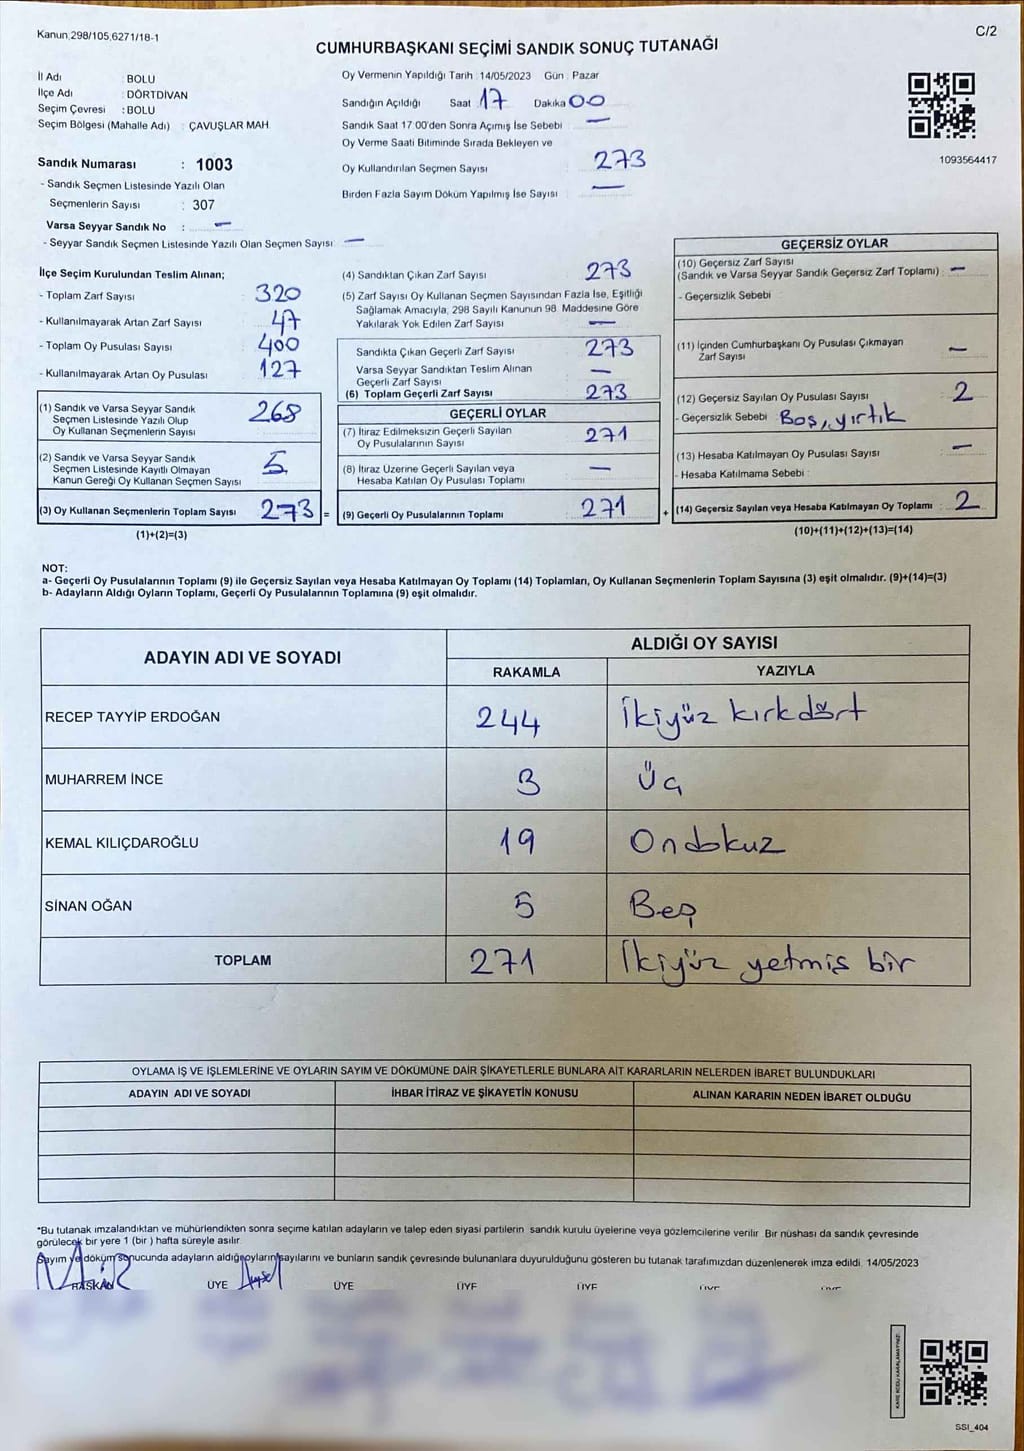 Kanun 298/105,6271/18-1
C/2
CUMHURBAŞKANI SEÇİMİ SANDIK SONUÇ TUTANAĞI
İl Adı : BOLU
İlçe Adı : DÖRTDİVAN
Seçim Çevresi : BOLU
Seçim Bölgesi (Mahalle Adı) : ÇAVUŞLAR MAH.
Sandık Numarası : 1003
- Sandık Seçmen Listesinde Yazılı Olan
Seçmenlerin Sayısı : 307
Varsa Seyyar Sandık No : —
- Seyyar Sandık Seçmen Listesinde Yazılı Olan Seçmen Sayısı : —
Oy Vermenin Yapıldığı Tarih : 14/05/2023 Gün : Pazar
Sandığın Açıldığı Saat 17 Dakika 00
Sandık Saat 17.00'den Sonra Açımış İse Sebebi : —
Oy Verme Saati Bitiminde Sırada Bekleyen ve
Oy Kullandırılan Seçmen Sayısı : 273
Birden Fazla Sayım Döküm Yapılmış İse Sayısı : —
1093564417
İlçe Seçim Kurulundan Teslim Alınan;
- Toplam Zarf Sayısı : 320
- Kullanılmayarak Artan Zarf Sayısı : 47
- Toplam Oy Pusulası Sayısı : 400
- Kullanılmayarak Artan Oy Pusulası : 127
(1) Sandık ve Varsa Seyyar Sandık
Seçmen Listesinde Yazılı Olup
Oy Kullanan Seçmenlerin Sayısı : 268
(2) Sandık ve Varsa Seyyar Sandık
Seçmen Listesinde Kayıtlı Olmayan
Kanun Gereği Oy Kullanan Seçmen Sayısı : 5
(3) Oy Kullanan Seçmenlerin Toplam Sayısı : 273 =
(1)+(2)=(3)
(4) Sandıktan Çıkan Zarf Sayısı : 273
(5) Zarf Sayısı Oy Kullanan Seçmen Sayısından Fazla İse, Eşitliği
Sağlamak Amacıyla, 298 Sayılı Kanunun 98. Maddesine Göre
Yakılarak Yok Edilen Zarf Sayısı : —
Sandıkta Çıkan Geçerli Zarf Sayısı : 273
Varsa Seyyar Sandıktan Teslim Alınan
Geçerli Zarf Sayısı : —
(6) Toplam Geçerli Zarf Sayısı : 273
GEÇERLİ OYLAR
(7) İtiraz Edilmeksizin Geçerli Sayılan
Oy Pusulalarının Sayısı : 271
(8) İtiraz Üzerine Geçerli Sayılan veya
Hesaba Katılan Oy Pusulası Toplamı : —
(9) Geçerli Oy Pusulalarının Toplamı : 271 +
GEÇERSİZ OYLAR
(10) Geçersiz Zarf Sayısı
(Sandık ve Varsa Seyyar Sandık Geçersiz Zarf Toplamı) : —
- Geçersizlik Sebebi :
(11) İçinden Cumhurbaşkanı Oy Pusulası Çıkmayan
Zarf Sayısı : —
(12) Geçersiz Sayılan Oy Pusulası Sayısı : 2
- Geçersizlik Sebebi : Boş, yırtık
(13) Hesaba Katılmayan Oy Pusulası Sayısı : —
- Hesaba Katılmama Sebebi :
(14) Geçersiz Sayılan veya Hesaba Katılmayan Oy Toplamı : 2
(10)+(11)+(12)+(13)=(14)
NOT:
a- Geçerli Oy Pusulalarının Toplamı (9) ile Geçersiz Sayılan veya Hesaba Katılmayan Oy Toplamı (14) Toplamları, Oy Kullanan Seçmenlerin Toplam Sayısına (3) eşit olmalıdır. (9)+(14)=(3)
b- Adayların Aldığı Oyların Toplamı, Geçerli Oy Pusulalarının Toplamına (9) eşit olmalıdır.
ADAYIN ADI VE SOYADI ALDIĞI OY SAYISI
RAKAMLA YAZIYLA
RECEP TAYYİP ERDOĞAN 244 İkiyüz kırkdört
MUHARREM İNCE 3 Üç
KEMAL KILIÇDAROĞLU 19 Ondokuz
SİNAN OĞAN 5 Beş
TOPLAM 271 İkiyüz yetmiş bir
OYLAMA İŞ VE İŞLEMLERİNE VE OYLARIN SAYIM VE DÖKÜMÜNE DAİR ŞİKAYETLERLE BUNLARA AİT KARARLARIN NELERDEN İBARET BULUNDUKLARI
ADAYIN ADI VE SOYADI İHBAR İTİRAZ VE ŞİKAYETİN KONUSU ALINAN KARARIN NEDEN İBARET OLDUĞU
*Bu tutanak imzalandıktan ve mühürlendikten sonra seçime katılan adayların ve talep eden siyasi partilerin sandık kurulu üyelerine veya gözlemcilerine verilir. Bir nüshası da sandık çevresinde
görülecek bir yere 1 (bir ) hafta süreyle asılır.
Sayım ve döküm sonucunda adayların aldığı oyların sayılarını ve bunların sandık çevresinde bulunanlara duyurulduğunu gösteren bu tutanak tarafımızdan düzenlenerek imza edildi. 14/05/2023
BAŞKAN ÜYE ÜYE ÜYE ÜYE ÜYE ÜYE
KARE KODU KARALAMAYINIZ!
SSI_404